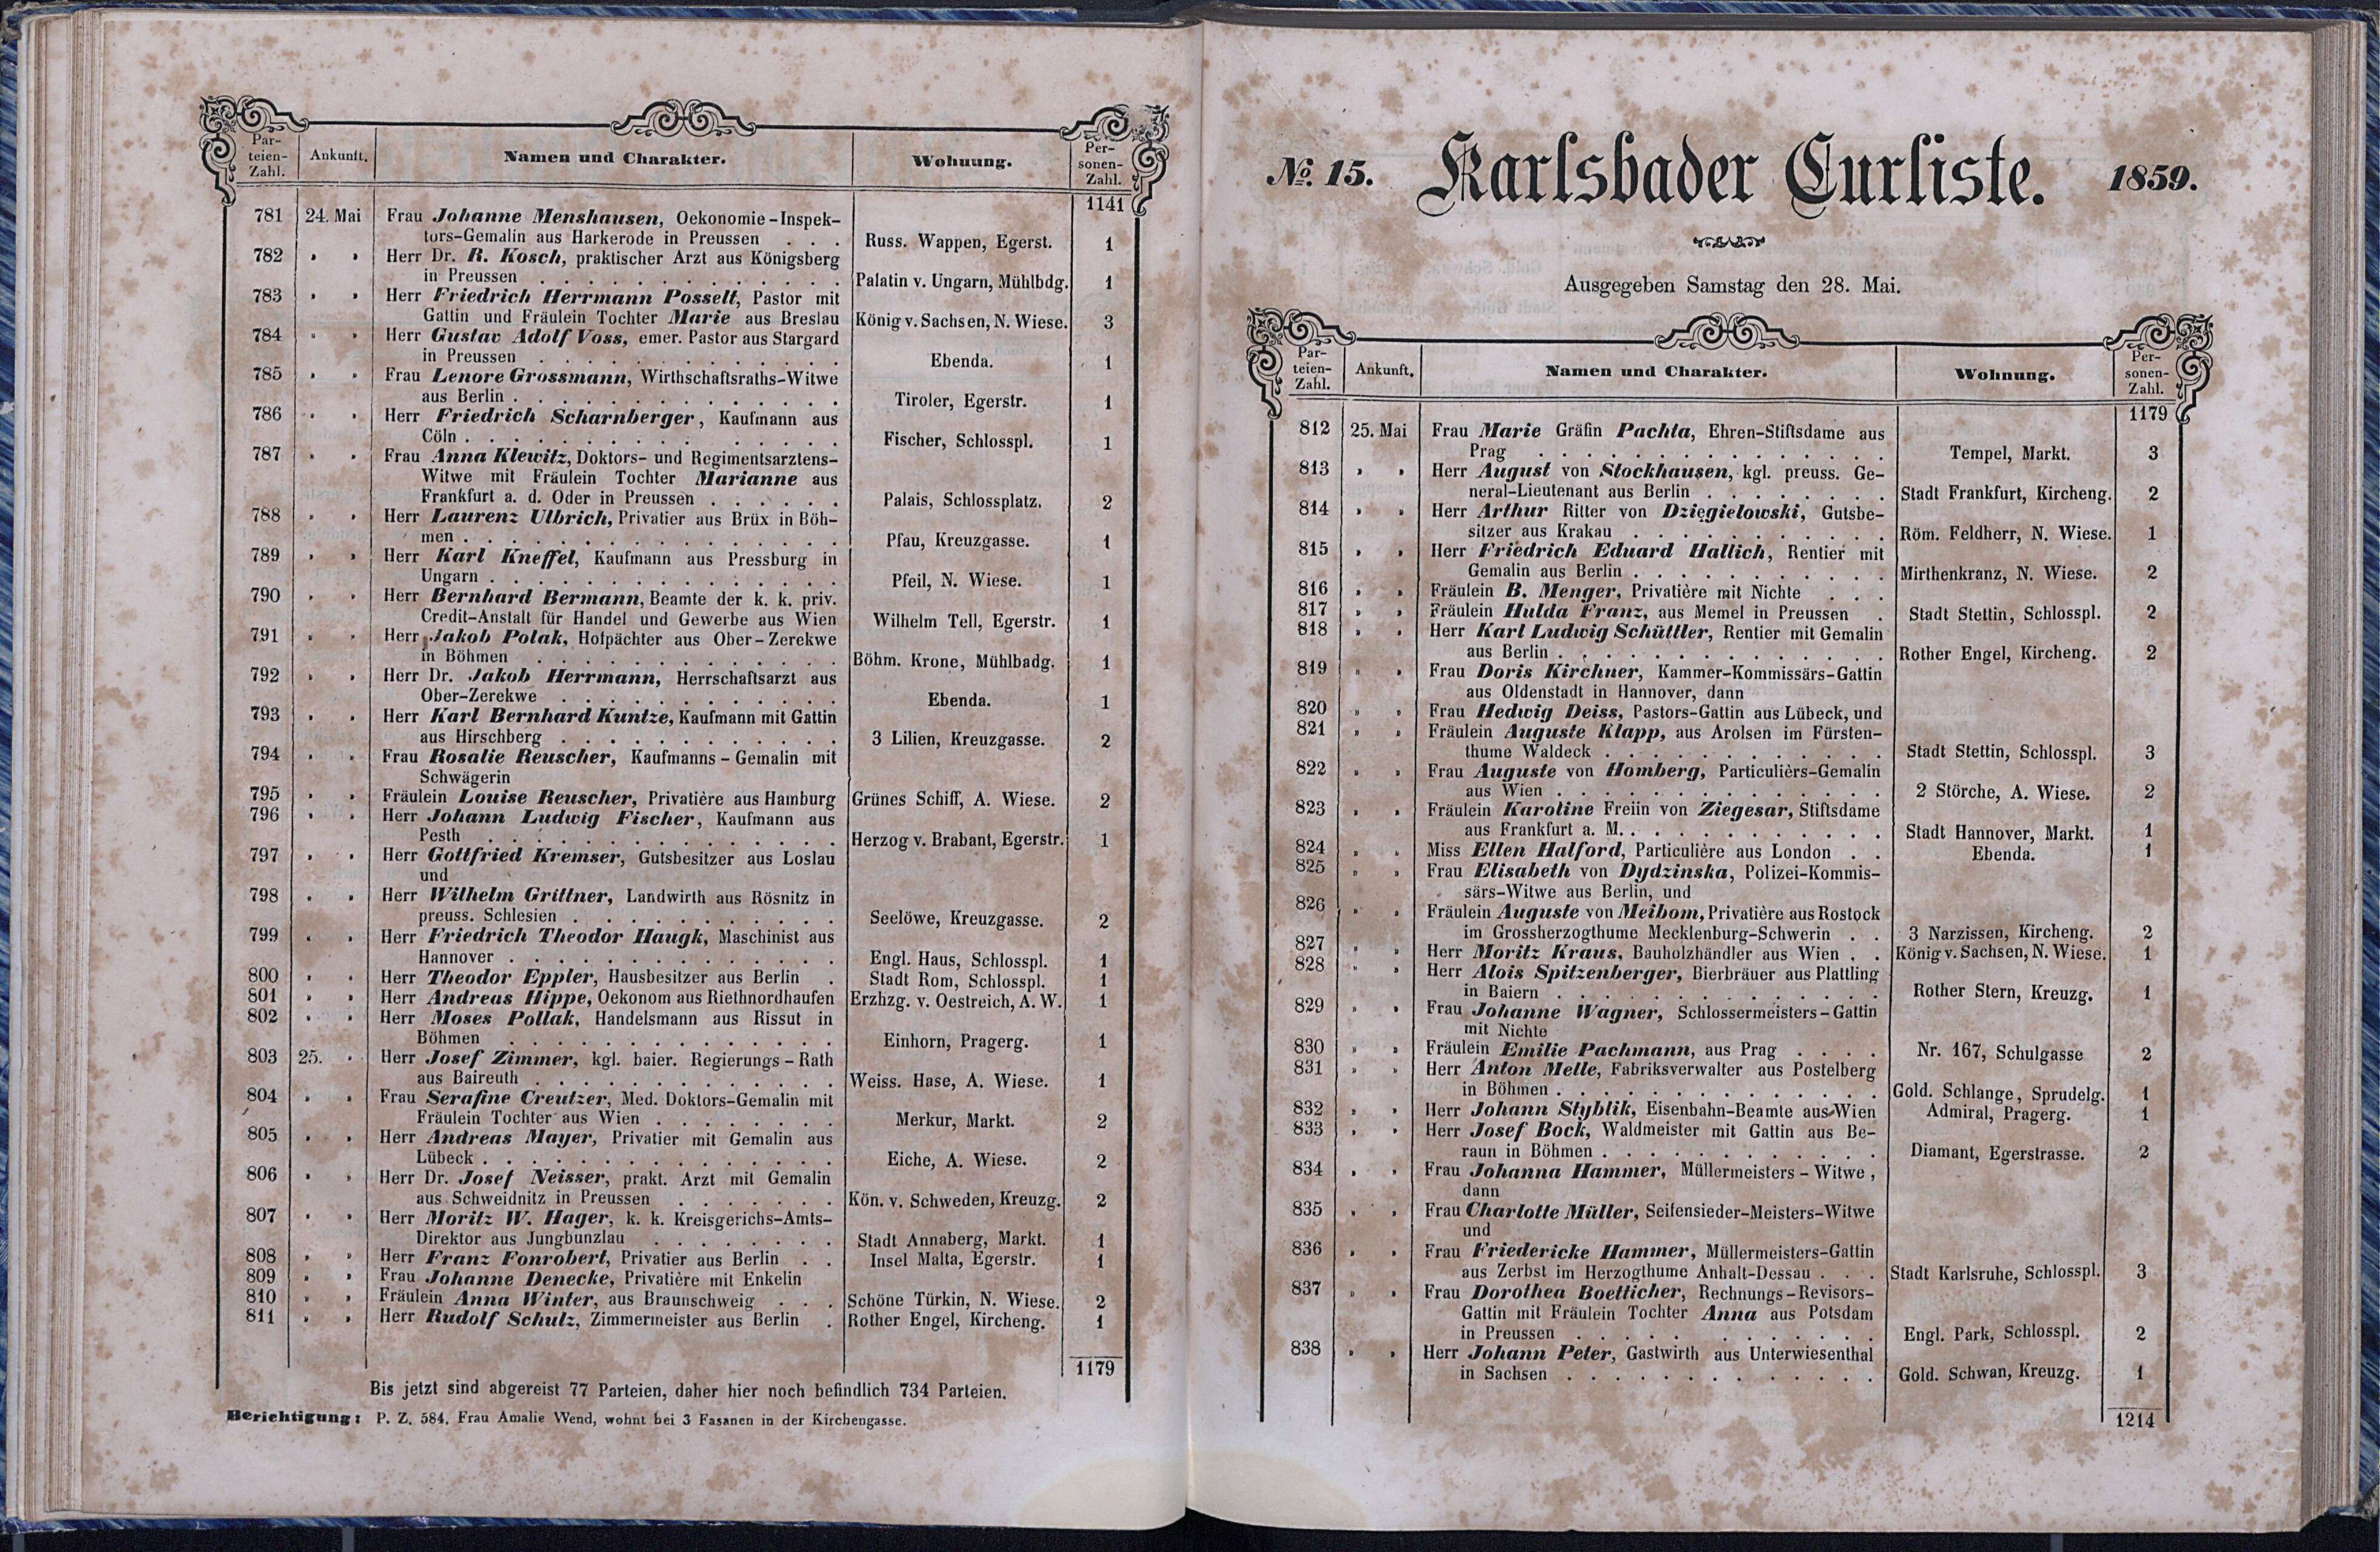 Par-
teien-
Zahl. Ankunft. Namen und Charakter. Wohnung. Per-
sonen-
Zahl.
1141
781 24. Mai Frau Johanne Menshausen, Oekonomie-Inspek-
tors-Gemalin aus Harkerode in Preussen . . . Russ. Wappen, Egerst. 1
782 „ „ Herr Dr. R. Kosch, praktischer Arzt aus Königsberg
in Preussen . . . Palatin v. Ungarn, Mühlbdg. 1
783 „ „ Herr Friedrich Herrmann Posselt, Pastor mit
Gattin und Fräulein Tochter Marie aus Breslau König v. Sachsen, N. Wiese. 3
784 „ „ Herr Gustav Adolf Voss, emer. Pastor aus Stargard
in Preussen . . . Ebenda. 1
785 „ „ Frau Lenore Grossmann, Wirthschaftsraths-Witwe
aus Berlin . . . Tiroler, Egerstr. 1
786 „ „ Herr Friedrich Scharnberger, Kaufmann aus
Cöln . . . Fischer, Schlosspl. 1
787 „ „ Frau Anna Klewitz, Doktors- und Regimentsarztens-
Witwe mit Fräulein Tochter Marianne aus
Frankfurt a. d. Oder in Preussen . . . Palais, Schlossplatz. 2
788 „ „ Herr Laurenz Ulbrich, Privatier aus Brüx in Böh-
men . . . Pfau, Kreuzgasse. 1
789 „ „ Herr Karl Kneffel, Kaufmann aus Pressburg in
Ungarn . . . Pfeil, N. Wiese. 1
790 „ „ Herr Bernhard Bermann, Beamte der k. k. priv.
Credit-Anstalt für Handel und Gewerbe aus Wien Wilhelm Tell, Egerstr. 1
791 „ „ Herr Jakob Polak, Hofpächter aus Ober-Zerekwe
in Böhmen . . . Böhm. Krone, Mühlbadg. 1
792 „ „ Herr Dr. Jakob Herrmann, Herrschaftsarzt aus
Ober-Zerekwe . . . Ebenda. 1
793 „ „ Herr Karl Bernhard Kuntze, Kaufmann mit Gattin
aus Hirschberg . . . 3 Lilien, Kreuzgasse. 2
794 „ „ Frau Rosalie Reuscher, Kaufmanns-Gemalin mit
Schwägerin
795 „ „ Fräulein Louise Reuscher, Privatière aus Hamburg Grünes Schiff, A. Wiese. 2
796 „ „ Herr Johann Ludwig Fischer, Kaufmann aus
Pesth . . . Herzog v. Brabant, Egerstr. 1
797 „ „ Herr Gottfried Kremser, Gutsbesitzer aus Loslau
und
798 „ „ Herr Wilhelm Grittner, Landwirth aus Rösnitz in
preuss. Schlesien . . . Seelöwe, Kreuzgasse. 2
799 „ „ Herr Friedrich Theodor Haugk, Maschinist aus
Hannover . . . Engl. Haus, Schlosspl. 1
800 „ „ Herr Theodor Eppler, Hausbesitzer aus Berlin . Stadt Rom, Schlosspl. 1
801 „ „ Herr Andreas Hippe, Oekonom aus Riethnordhaufen Erzhzg. v. Oestreich, A. W. 1
802 „ „ Herr Moses Pollak, Handelsmann aus Rissut in
Böhmen . . . Einhorn, Pragerg. 1
803 25. „ Herr Josef Zimmer, kgl. baier. Regierungs-Rath
aus Baireuth . . . Weiss. Hase, A. Wiese. 1
804 „ „ Frau Serafine Creutzer, Med. Doktors-Gemalin mit
Fräulein Tochter aus Wien . . . Merkur, Markt. 2
805 „ „ Herr Andreas Mayer, Privatier mit Gemalin aus
Lübeck . . . Eiche, A. Wiese. 2
806 „ „ Herr Dr. Josef Neisser, prakt. Arzt mit Gemalin
aus Schweidnitz in Preussen . . . Kön. v. Schweden, Kreuzg. 2
807 „ „ Herr Moritz W. Hager, k. k. Kreisgerichs-Amts-
Direktor aus Jungbunzlau . . . Stadt Annaberg, Markt. 1
808 „ „ Herr Franz Fonrobert, Privatier aus Berlin . . Insel Malta, Egerstr. 1
809 „ „ Frau Johanne Denecke, Privatière mit Enkelin
810 „ „ Fräulein Anna Winter, aus Braunschweig . . . Schöne Türkin, N. Wiese. 2
811 „ „ Herr Rudolf Schulz, Zimmermeister aus Berlin . Rother Engel, Kircheng. 1
1179
Bis jetzt sind abgereist 77 Parteien, daher hier noch befindlich 734 Parteien.
Berichtigung: P. Z. 584, Frau Amalie Wend, wohnt bei 3 Fasanen in der Kirchengasse.
No. 15. Karlsbader Curliste. 1859.
Ausgegeben Samstag den 28. Mai.
Par-
teien-
Zahl. Ankunft. Namen und Charakter. Wohnung. Per-
sonen-
Zahl.
1179
812 25. Mai Frau Marie Gräfin Pachta, Ehren-Stiftsdame aus
Prag . . . Tempel, Markt. 3
813 „ „ Herr August von Stockhausen, kgl. preuss. Ge-
neral-Lieutenant aus Berlin . . . Stadt Frankfurt, Kircheng. 2
814 „ „ Herr Arthur Ritter von Dzięgielowski, Gutsbe-
sitzer aus Krakau . . . Röm. Feldherr, N. Wiese. 1
815 „ „ Herr Friedrich Eduard Hallich, Rentier mit
Gemalin aus Berlin . . . Mirthenkranz, N. Wiese. 2
816 „ „ Fräulein B. Menger, Privatière mit Nichte . . .
817 „ „ Fräulein Hulda Franz, aus Memel in Preussen . Stadt Stettin, Schlosspl. 2
818 „ „ Herr Karl Ludwig Schüttler, Rentier mit Gemalin
aus Berlin . . . Rother Engel, Kircheng. 2
819 „ „ Frau Doris Kirchner, Kammer-Kommissärs-Gattin
aus Oldenstadt in Hannover, dann
820 „ „ Frau Hedwig Deiss, Pastors-Gattin aus Lübeck, und
821 „ „ Fräulein Auguste Klapp, aus Arolsen im Fürsten-
thume Waldeck . . . Stadt Stettin, Schlosspl. 3
822 „ „ Frau Auguste von Homberg, Particulièrs-Gemalin
aus Wien . . . 2 Störche, A. Wiese. 2
823 „ „ Fräulein Karoline Freiin von Ziegesar, Stiftsdame
aus Frankfurt a. M. . . . Stadt Hannover, Markt. 1
824 „ „ Miss Ellen Halford, Particulière aus London . . Ebenda. 1
825 „ „ Frau Elisabeth von Dydzinska, Polizei-Kommis-
särs-Witwe aus Berlin, und
826 „ „ Fräulein Auguste von Meibom, Privatière aus Rostock
im Grossherzogthume Mecklenburg-Schwerin . . 3 Narzissen, Kircheng. 2
827 „ „ Herr Moritz Kraus, Bauholzhändler aus Wien . . König v. Sachsen, N. Wiese. 1
828 „ „ Herr Alois Spitzenberger, Bierbräuer aus Plattling
in Baiern . . . Rother Stern, Kreuzg. 1
829 „ „ Frau Johanne Wagner, Schlossermeisters-Gattin
mit Nichte
830 „ „ Fräulein Emilie Pachmann, aus Prag . . . . Nr. 167, Schulgasse 2
831 „ „ Herr Anton Melle, Fabriksverwalter aus Postelberg
in Böhmen . . . Gold. Schlange, Sprudelg. 1
832 „ „ Herr Johann Styblik, Eisenbahn-Beamte aus Wien Admiral, Pragerg. 1
833 „ „ Herr Josef Bock, Waldmeister mit Gattin aus Be-
raun in Böhmen . . . Diamant, Egerstrasse. 2
834 „ „ Frau Johanna Hammer, Müllermeisters-Witwe,
dann
835 „ „ Frau Charlotte Müller, Seifensieder-Meisters-Witwe
und
836 „ „ Frau Friedericke Hammer, Müllermeisters-Gattin
aus Zerbst im Herzogthume Anhalt-Dessau . . . Stadt Karlsruhe, Schlosspl. 3
837 „ „ Frau Dorothea Boetticher, Rechnungs-Revisors-
Gattin mit Fräulein Tochter Anna aus Potsdam
in Preussen . . . Engl. Park, Schlosspl. 2
838 „ „ Herr Johann Peter, Gastwirth aus Unterwiesenthal
in Sachsen . . . Gold. Schwan, Kreuzg. 1
1214